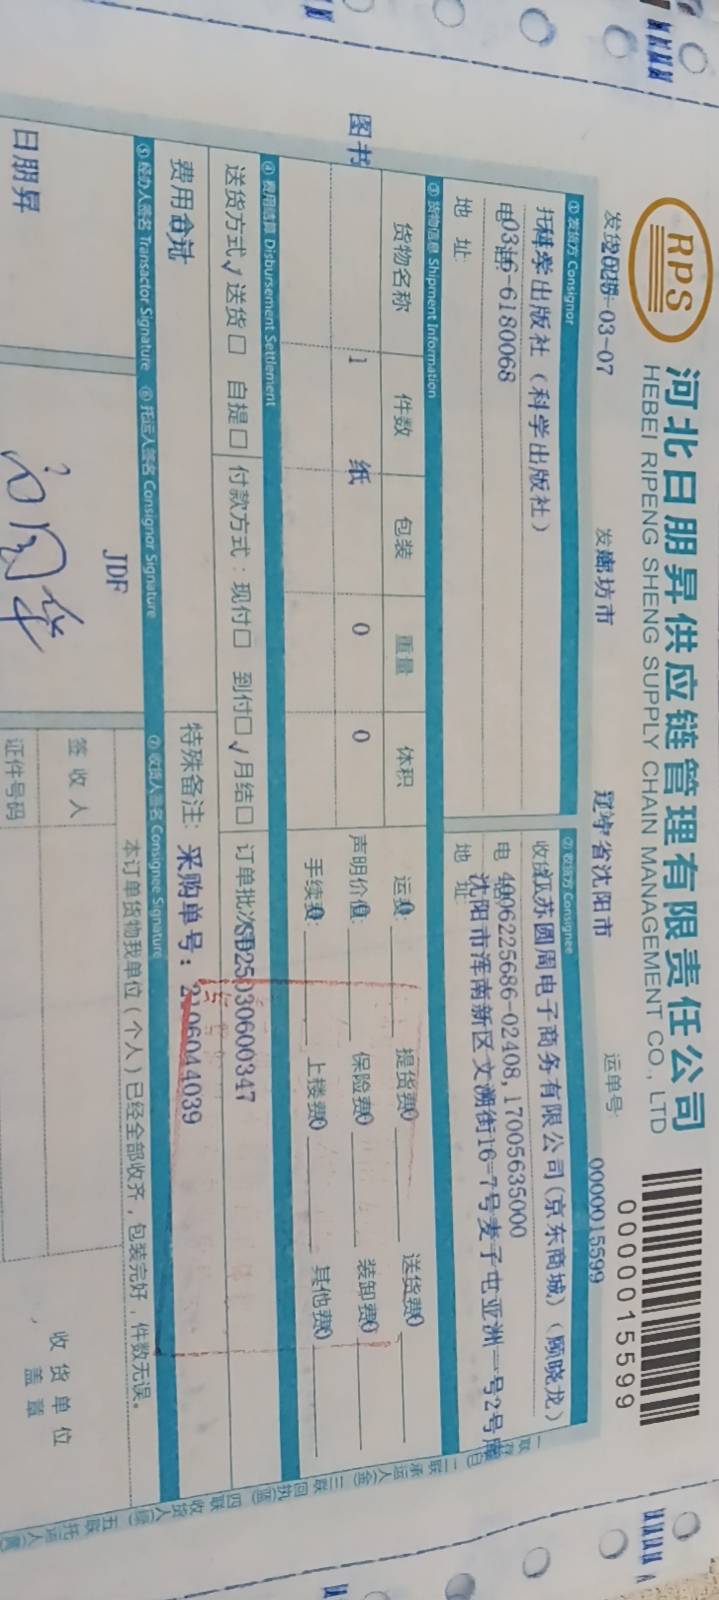 RPS
河北日朋昇供应链管理有限责任公司
HEBEI RIPENG SHENG SUPPLY CHAIN MANAGEMENT CO., LTD
0000015599
发货日期：2025-03-07
廊坊市
辽宁省沈阳市
运单号：
0000015599
① 发货方 Consignor
② 收货方 Consignee
科学出版社（科学出版社）
江苏圆周电子商务有限公司(京东商城)（顾晓龙）
0316-6180068
4006225686-02408,17005635000
地 址
地 址
沈阳市浑南新区文溯街16-7号麦子屯亚洲一号2号库
③ 货物信息 Shipment Information
货物名称 件数 包装 重量 体积
图书 1 纸 0 0
运费：0 提货费0 送货费0
声明价值：0 保险费0 装卸费0
手续费：0 上楼费0 其他费0
④ 费用结算 Disbursement Settlement
送货方式√送货□ 自提□ 付款方式：现付□ 到付□√月结□
订单批次号SD25030600347
费用合计
特殊备注： 采购单号：2106044039
⑤ 经办人签名 Transactor Signature ⑥ 托运人签名 Consignor Signature ⑦ 收货人签名 Consignee Signature
日朋昇
JDF
本订单货物我单位（个人）已经全部收齐，包装完好，件数无误。
签 收 人
证件号码
收 货 单 位
盖 章